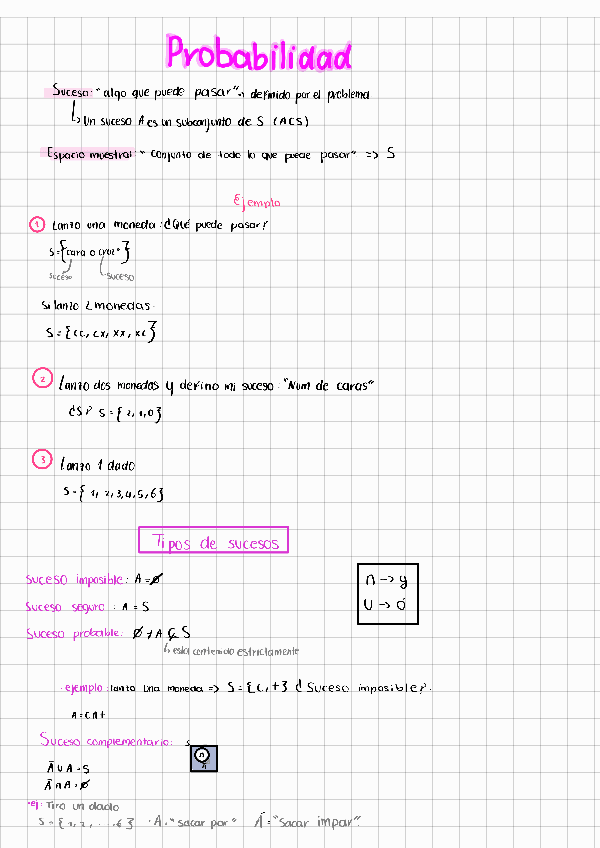 Probabilidad
Suceso: "algo que puede pasar" → definido por el problema
↳ Un suceso A es un subconjunto de S (A⊂S)
Espacio muestral: "conjunto de todo lo que puede pasar" => S
Ejemplo
① Lanzo una moneda: ¿Qué puede pasar?
S={cara o cruz}
suceso suceso
Si lanzo 2 monedas.
S = {cc, cx, xx, xc}
② Lanzo dos monedas y defino mi suceso: "Num de caras"
¿S? S={2,1,0}
③ Lanzo 1 dado
S={1,2,3,4,5,6}
Tipos de sucesos
Suceso imposible: A=∅
n → y
Suceso seguro: A = S
U → ó
Suceso probable: ∅ ≠ A ⊊ S
↳ esta contenido estrictamente
·ejemplo: lanto una moneda => S={c,+} ¿Suceso imposible?
A=c∩+
Suceso complementario: S
Ā∪A=S
Ā∩A=∅
·ej: Tiro un dado
S={1,2,...6} ·A="sacar par" Ā="sacar impar".